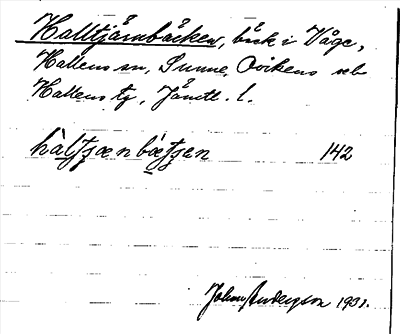 Halltjärnbäcken, bäck i Våge,
Hallens sn, Sunne, Ovikens och
Hallens tg, Jämtl. l.
hàlʃʃænbæʃʃen 142
Johan Anderzson 1931.